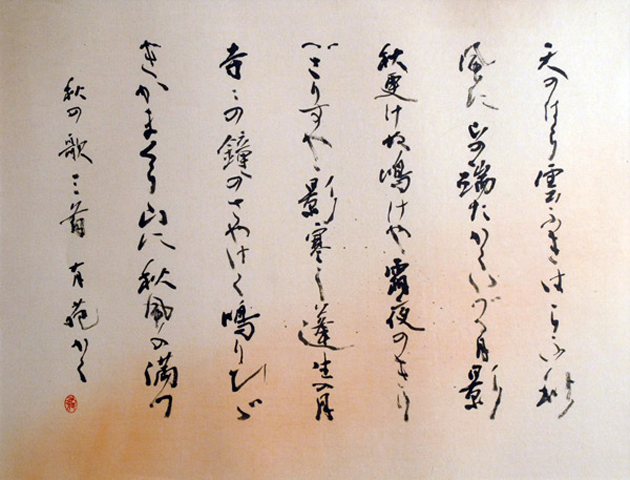 天のはら雲ふきはらふ秋
風に山の端たかくいづる月影
秋更けぬ鳴けや霜夜のきり
ぎりすやゝ影寒し蓬生の月
寺々の鐘のさやけく鳴りひび
きかまくら山に秋風の満つ
秋の歌三首 かく